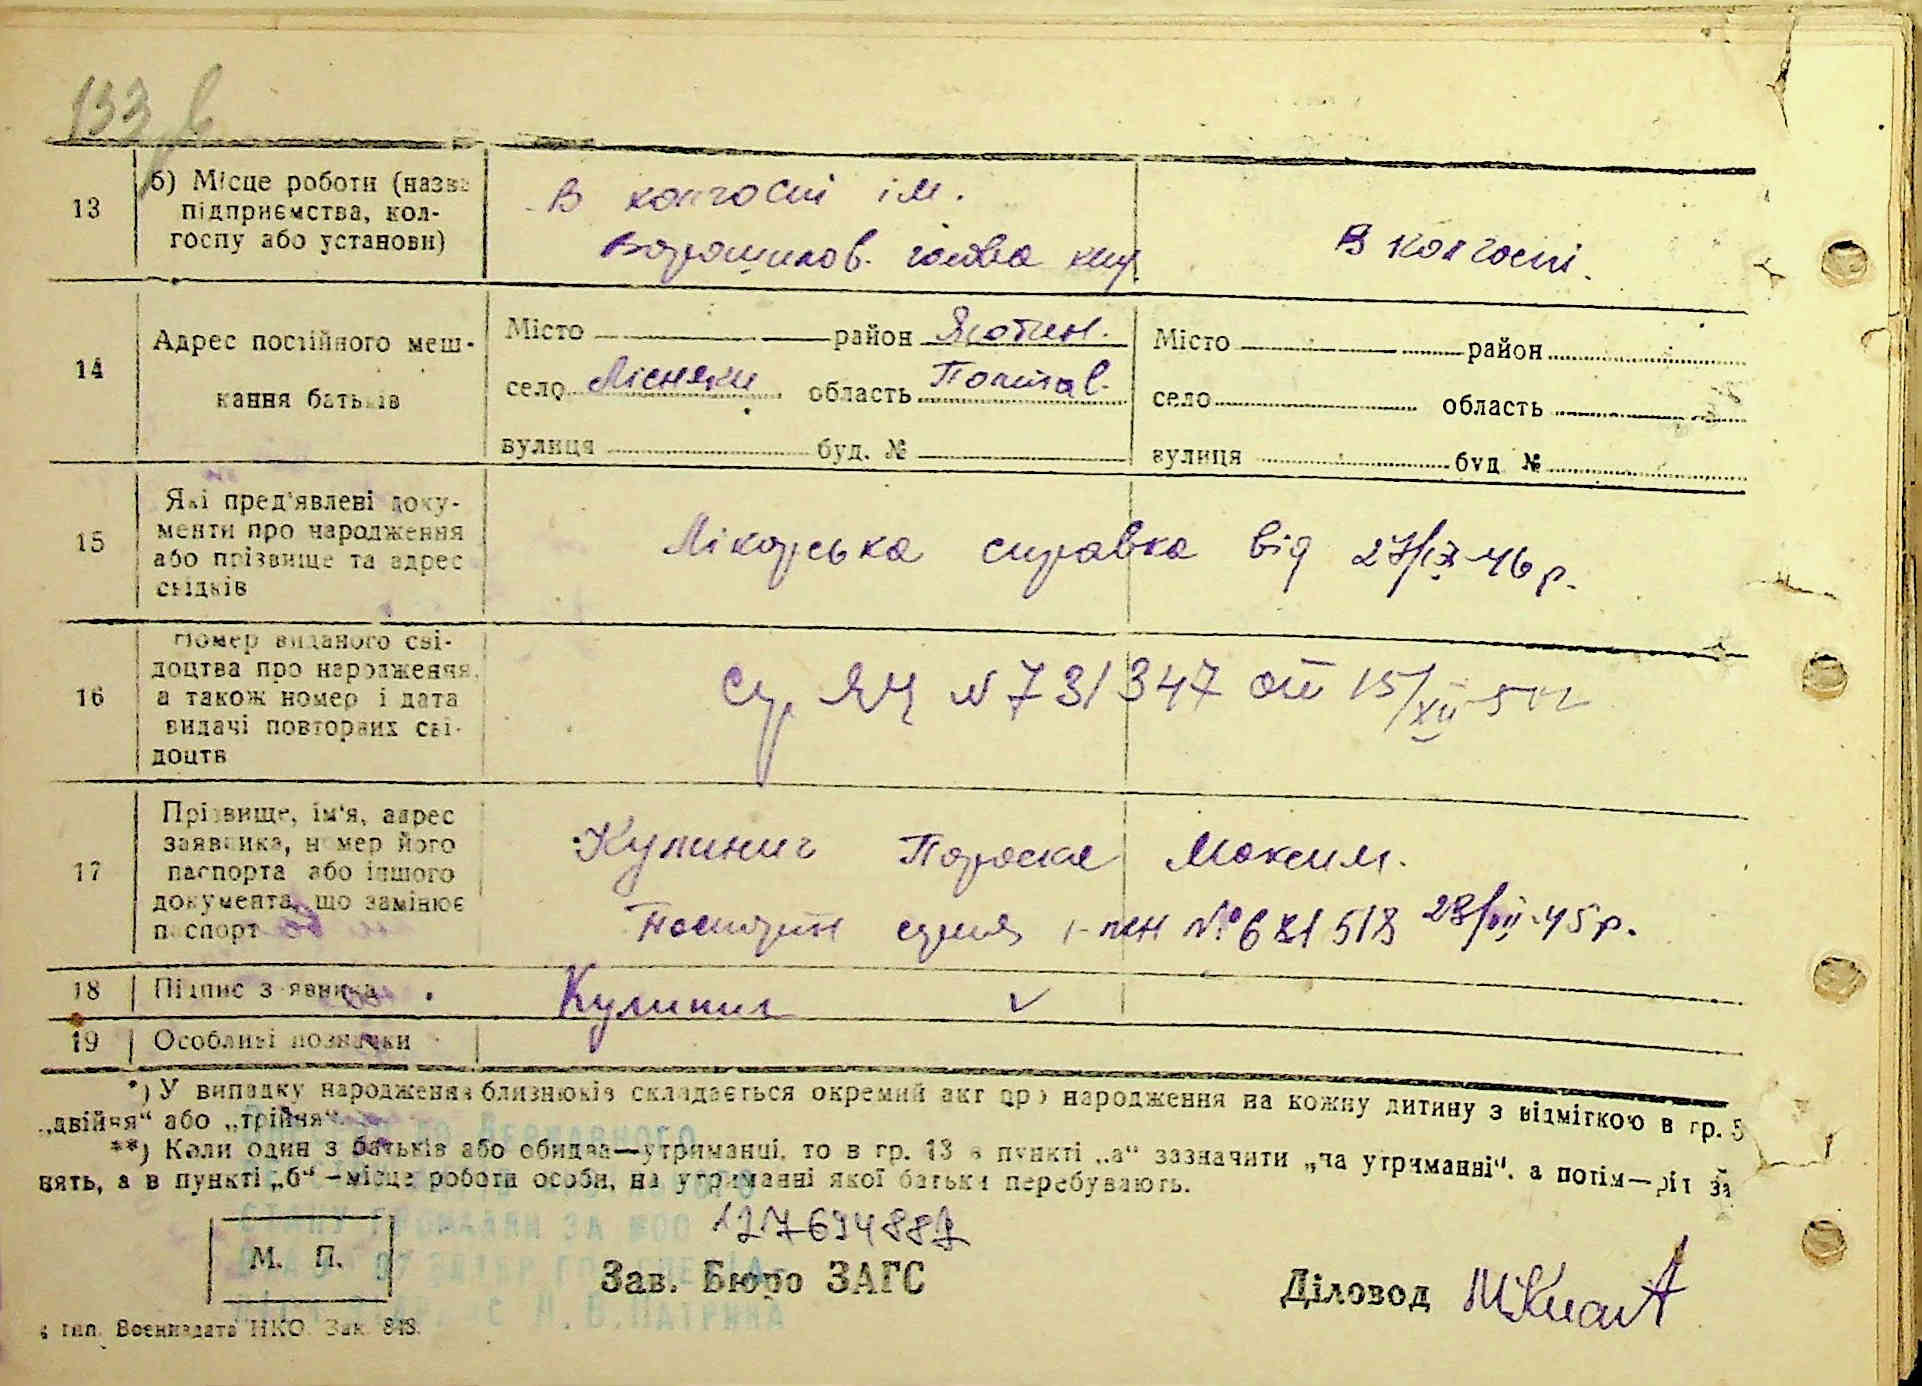 133
13
б) Місце роботи (назва
підприємства, кол-
госпу або установи)
В колгоспі ім.
Ворошилов. голова
В колгоспі.
14
Адрес постійного меш-
кання батьків
Місто район Яготин.
село Лісняки область Полтав.
вулиця буд. №
Місто район
село область
вулиця буд №
15
Які пред'явлені доку-
менти про народження
або прізвище та адрес
свідків
Лікарська справка від 46 р.
16
Номер виданого сві-
доцтва про народження,
а також номер і дата
видачі повторних сві-
доцтв
ЯЧ N 731347 от 15/XII
17
Прізвище, ім'я, адрес
заявника, номер його
паспорта або іншого
документа, що замінює
паспорт
Кулинич Параска Максим.
Паспорт серия № 45 р.
18
Підпис заявника
Кулинич
19
Особливі позначки
*) У випадку народження близнюків складається окремий акт про народження на кожну дитину з відміткою в гр. 5
„двійня“ або „трійня“.
**) Коли один з батьків або обидва—утриманці, то в гр. 13 в пункті „а“ зазначити „на утриманні“, а потім—рід за
нять, а в пункті „б“ —місце роботи особи, на утриманні якої батьки перебувають.
М. П.
Зав. Бюро ЗАГС
Діловод
тип. Воениздата НКО. Зак. 848.